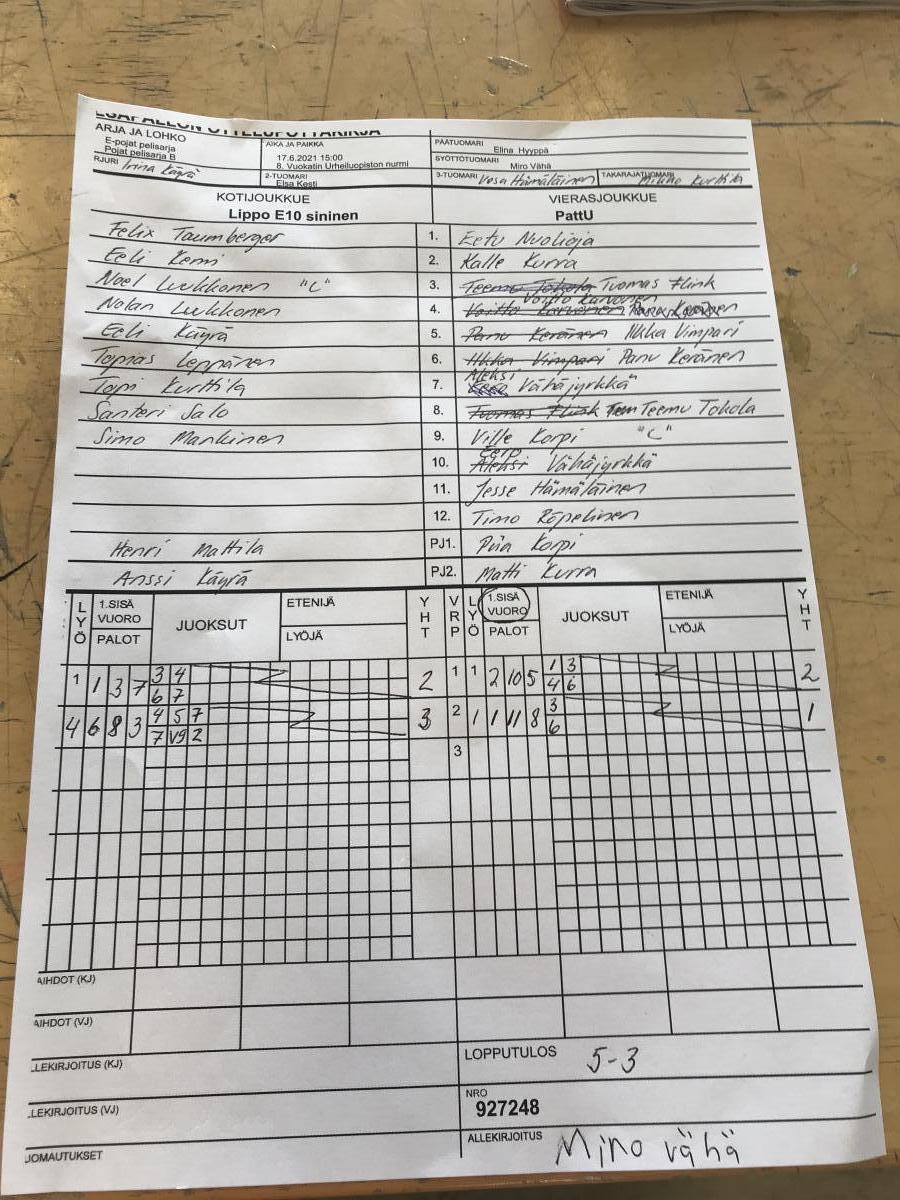 ESÄPALLON OTTELUPÖYTÄKIRJA
ARJA JA LOHKO
E-pojat pelisarja
Pojat pelisarja B
AIKA JA PAIKKA
17.6.2021 15:00
8. Vuokatin Urheiluopiston nurmi
PÄÄTUOMARI Elina Hyyppä
SYÖTTÖTUOMARI Miro Vähä
RJURI Irina Käyrä
2-TUOMARI Elsa Kesti
3-TUOMARI Vesa Hämäläinen TAKARAJATUOMARI Mikko Kurttila
KOTIJOUKKUE VIERASJOUKKUE
Lippo E10 sininen PattU
Felix Taumberger 1. Eetu Nuolioja
Eeli Kemi 2. Kalle Kurra
Noel Luukkonen "C" 3. Teemu Tokola Tuomas Flink
Nolan Luukkonen 4. Voitto Karvonen Voitto Karvonen Panu Keränen
Eeli Käyrä 5. Panu Keränen Ilkka Vimpari
Tomas Leppänen 6. Ilkka Vimpari Panu Keränen
Topi Kurttila 7. Eero Aleksi Vähäjyrkkä
Santeri Salo 8. Tuomas Flink Tem Teemu Tokola
Simo Mankinen 9. Ville Korpi "C"
10. Aleksi Eero Vähäjyrkkä
11. Jesse Hämäläinen
12. Timo Röpelinen
Henri Mattila PJ1. Piia Korpi
Anssi Käyrä PJ2. Matti Kurra
LYÖ 1.SISÄ VUORO PALOT JUOKSUT ETENIJÄ LYÖJÄ YHT VRP LYÖ 1.SISÄ VUORO PALOT JUOKSUT ETENIJÄ LYÖJÄ YHT
1 1 3 7 3 4 2 1 1 2 10 5 1 3 2
6 7 4 6
4 6 8 3 4 5 7 3 2 1 1 11 8 3 1
7 V9 2 6
3
AIHDOT (KJ)
AIHDOT (VJ)
LLEKIRJOITUS (KJ)
LOPPUTULOS 5-3
LLEKIRJOITUS (VJ)
NRO
927248
UOMAUTUKSET
ALLEKIRJOITUS Miro vähä